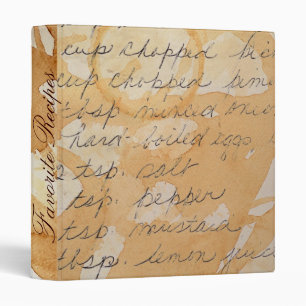 Favorite Recipes
cup chopped
cup chopped
tbsp minced onion
hard-boiled eggs
tsp. salt
tsp. pepper
tsp mustard
tbsp. lemon juice